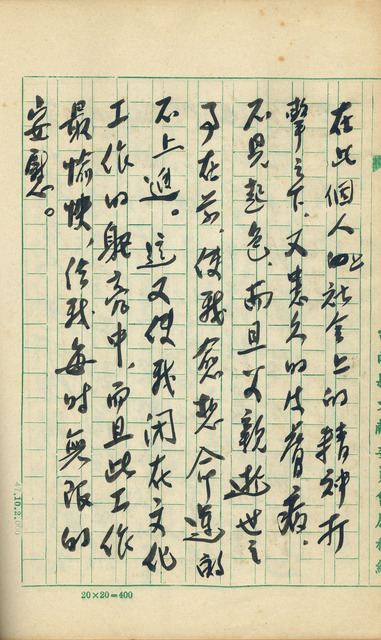 在此個人與社會上的精神打
擊之下,又患久的皮膚病,
不見起色,而且父親逝世之
事在前,使我愈想命運的
不上進。這又使我閑在文化
工作的繁忙中,而且此工作
最愉快,給我每时無限的
安慰。
20×20=400